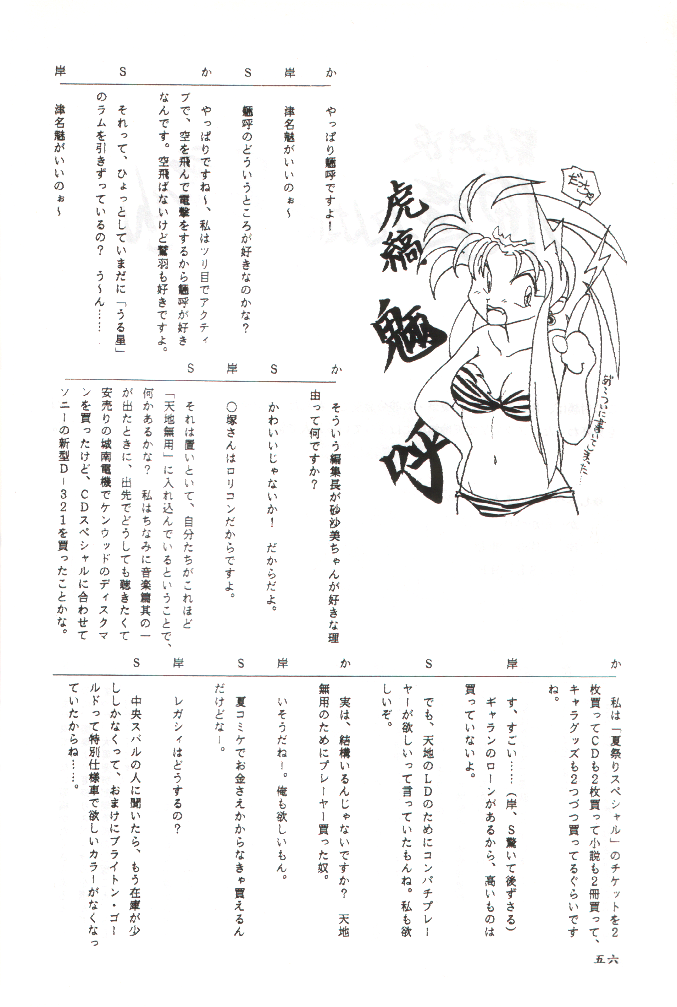 虎縞魎呼
だっちゃ
か　やっぱり魎呼ですよ!
岸　津名魅がいいのぉ~
S　魎呼のどういうところが好きなのかな?
か　やっぱりですね~、私はツリ目でアクティ
ブで、空を飛んで電撃をするから魎呼が好き
なんです。空飛ばないけど鷲羽も好きですよ。
S　それって、ひょっとしていまだに「うる星」
のラムを引きずっているの?　う~ん……
岸　津名魅がいいのぉ~
か　そういう編集長が砂沙美ちゃんが好きな理
由って何ですか?
S　かわいいじゃないか!　だからだよ。
岸　○塚さんはロリコンだからですよ。
S　それは置いといて、自分たちがこれほど
「天地無用」に入れ込んでいるということで、
何かあるかな?　私はちなみに音楽篇其の一
が出たときに、出先でどうしても聴きたくて
安売りの城南電機でケンウッドのディスクマ
ンを買ったけど、CDスペシャルに合わせて
ソニーの新型D-321を買ったことかな。
か　私は「夏祭りスペシャル」のチケットを2
枚買ってCDも2枚買って小説も2冊買って、
キャラグッズも2つづつ買ってるぐらいです
ね。
岸　す、すごい……(岸、S驚いて後ずさる)
ギャランのローンがあるから、高いものは
買っていないよ。
S　でも、天地のLDのためにコンパチプレー
ヤーが欲しいって言っていたもんね。私も欲
しいぞ。
か　実は、結構いるんじゃないですか?　天地
無用のためにプレーヤー買った奴。
岸　いそうだねー。俺も欲しいもん。
S　夏コミケでお金さえかからなきゃ買えるん
だけどなー。
岸　レガシィはどうするの?
S　中央スバルの人に聞いたら、もう在庫が少
ししかなくって、おまけにブライトン・ゴー
ルドって特別仕様車で欲しいカラーがなくなっ
ていたからね……。
五六